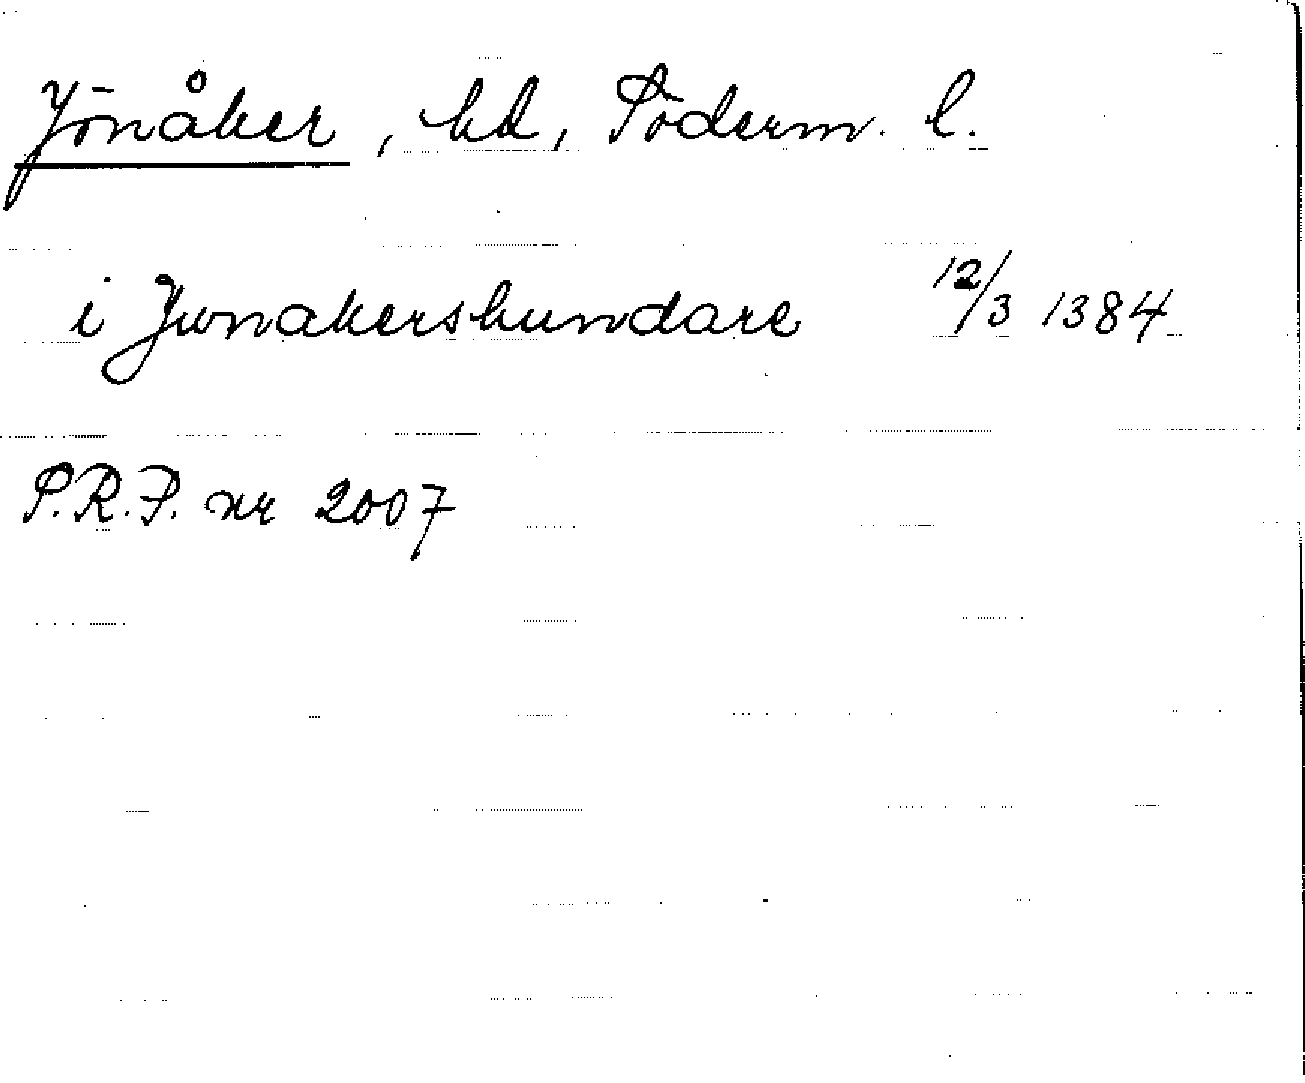 Jönåker, hd, Söderm. l.
i Junakershundare 12/3 1384
S.R.P. nr 2007